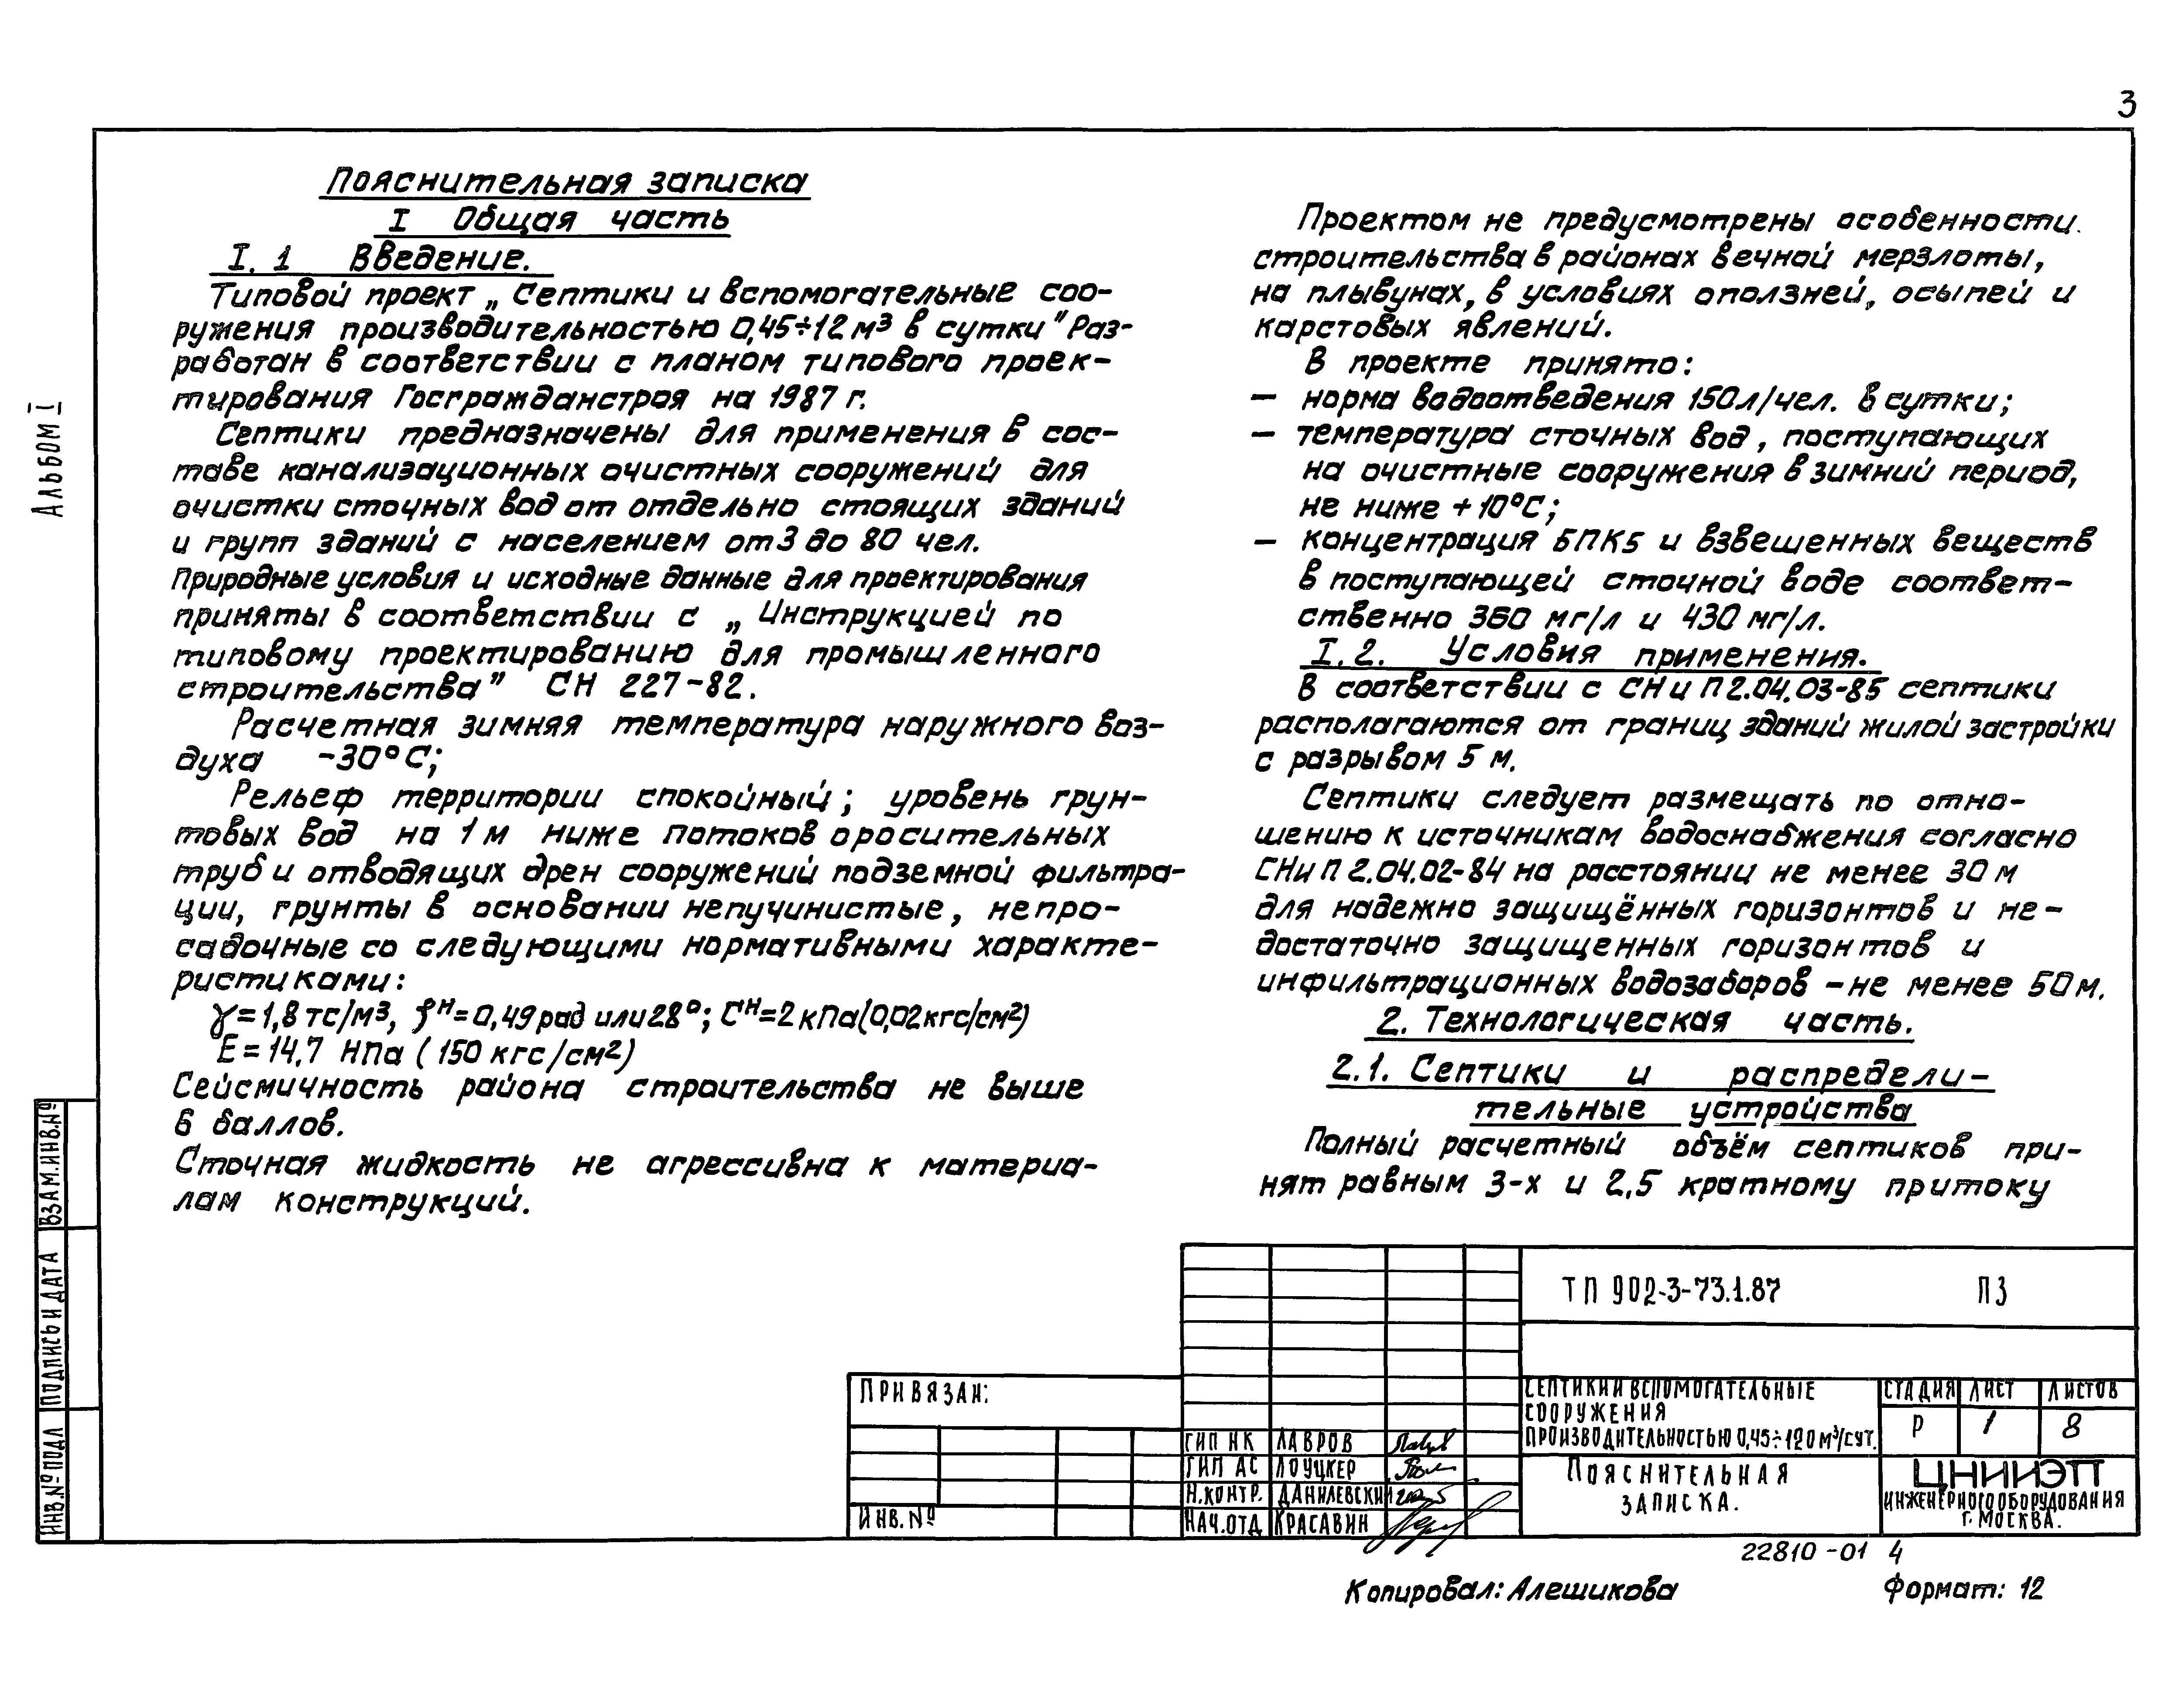 3
Альбом I
Пояснительная записка
I Общая часть
I. 1 Введение.
Типовой проект „Септики и вспомогательные соо-
ружения производительностью 0,45÷12 м³ в сутки" Раз-
работан в соответствии с планом типового проек-
тирования Госгражданстроя на 1987 г.
Септики предназначены для применения в сос-
таве канализационных очистных сооружений для
очистки сточных вод от отдельно стоящих зданий
и групп зданий с населением от 3 до 80 чел.
Природные условия и исходные данные для проектирования
приняты в соответствии с „Инструкцией по
типовому проектированию для промышленного
строительства" СН 227-82.
Расчетная зимняя температура наружного воз-
духа -30°С;
Рельеф территории спокойный; уровень грун-
товых вод на 1 м ниже потоков оросительных
труб и отводящих дрен сооружений подземной фильтра-
ции, грунты в основании непучинистые, непро-
садочные со следующими нормативными характе-
ристиками:
γ=1,8 тс/м³, φᴴ=0,49 рад или 28°; Сᴴ=2 кПа(0,02 кгс/см²)
Е=14,7 НПа (150 кгс/см²)
Сейсмичность района строительства не выше
6 баллов.
Сточная жидкость не агрессивна к материа-
лам конструкций.
Проектом не предусмотрены особенности
строительства в районах вечной мерзлоты,
на плывунах, в условиях оползней, осыпей и
карстовых явлений.
В проекте принято:
— норма водоотведения 150л/чел. в сутки;
— температура сточных вод, поступающих
на очистные сооружения в зимний период,
не ниже +10°С;
— концентрация БПК5 и взвешенных веществ
в поступающей сточной воде соответ-
ственно 360 мг/л и 430 мг/л.
I. 2. Условия применения.
В соответствии с СНиП 2.04.03-85 септики
располагаются от границ зданий жилой застройки
с разрывом 5 м.
Септики следует размещать по отно-
шению к источникам водоснабжения согласно
СНиП 2.04.02-84 на расстоянии не менее 30 м
для надежно защищённых горизонтов и не-
достаточно защищенных горизонтов и
инфильтрационных водозаборов - не менее 50 м.
2. Технологическая часть.
2.1. Септики и распредели-
тельные устройства
Полный расчетный объём септиков при-
нят равным 3-х и 2,5 кратному притоку
ТП 902-3-73.1.87 ПЗ
ПРИВЯЗАН:
ИНВ.№
ГИП НК ЛАВРОВ
ГИП АС ЛОУЦКЕР
Н.КОНТР. ДАНИЛЕВСКИЙ
НАЧ.ОТД КРАСАВИН
СЕПТИКИ И ВСПОМОГАТЕЛЬНЫЕ
СООРУЖЕНИЯ
ПРОИЗВОДИТЕЛЬНОСТЬЮ 0,45÷120 м³/СУТ.
СТАДИЯ ЛИСТ ЛИСТОВ
Р 1 8
ПОЯСНИТЕЛЬНАЯ
ЗАПИСКА.
ЦНИИЭП
ИНЖЕНЕРНОГО ОБОРУДОВАНИЯ
Г. МОСКВА.
ИНВ.№ПОДЛ ПОДПИСЬ И ДАТА ВЗАМ.ИНВ.№
22810-01 4
Копировал: Алешикова Формат: 12